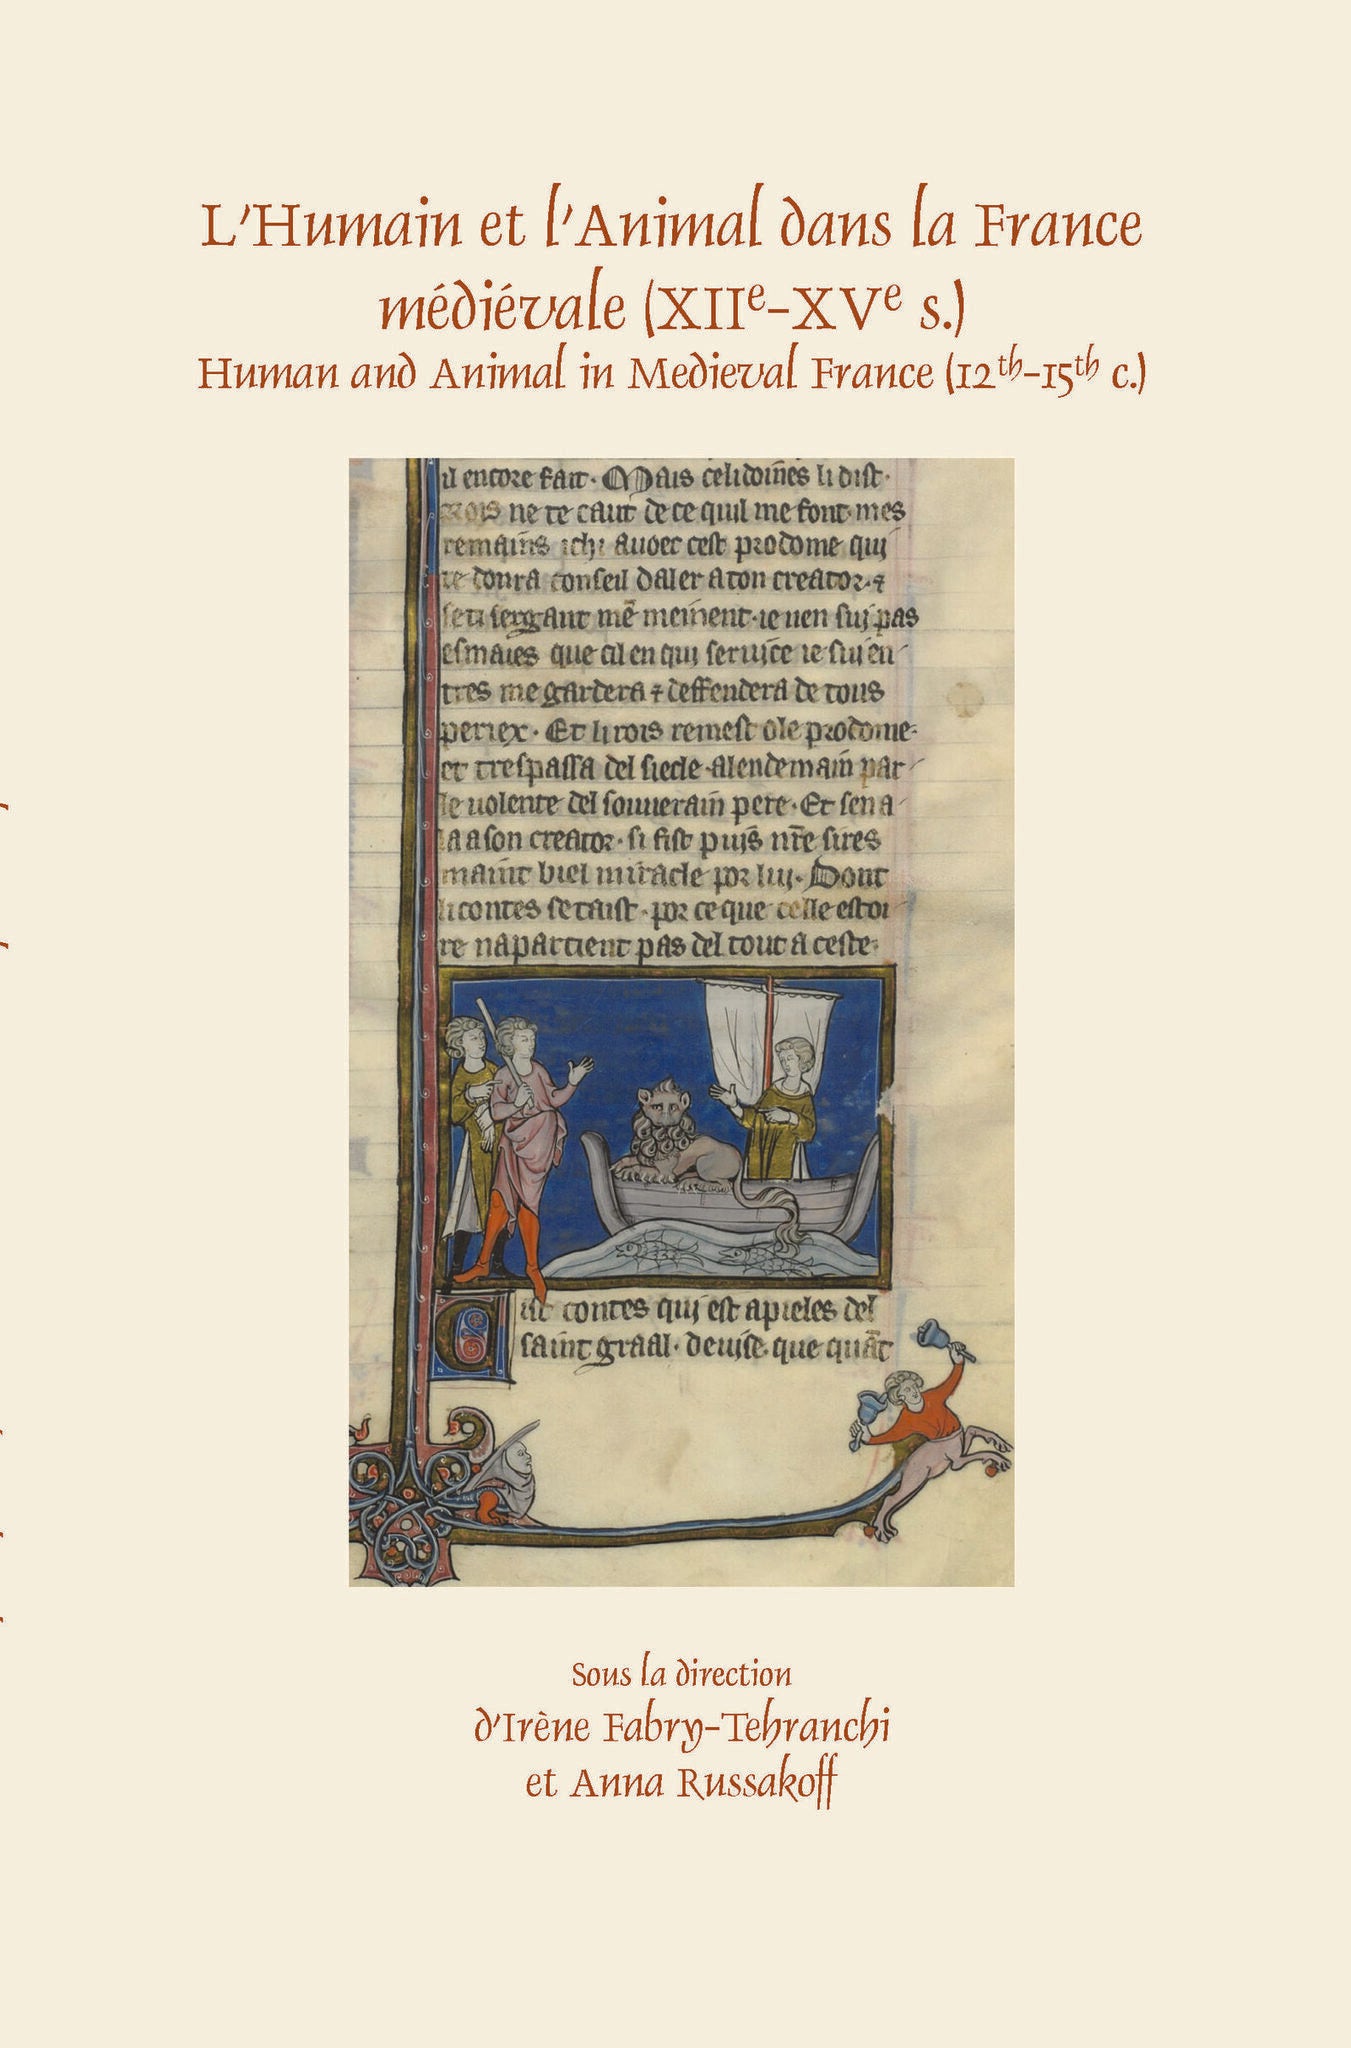 L'Humain et l'Animal dans la France
médiévale (XIIe-XVe s.)
Human and Animal in Medieval France (12th-15th c.)
il encore fait. Mais celidoines li dist.
rois ne te caut de ce quil me font. mes
remains ichi avoec cest prodome qui
te donra conseil daler a ton creator. ⁊
se ti sergant me meinent. ie nen sui pas
esmaies que cil en qui service ie sui en
tres me gardera ⁊ deffendera de tous
periex. Et li rois remest o le prodome.
et trespassa del siecle. alendemain par
le volente del souverain pere. Et sen a
la a son creator. si fist puis nře sires
maint biel miracle por lui. Dont
li contes se taist. por ce que celle estoi
re napartient pas del tout a ceste.
Cist contes qui est apieles del
saint graal. devise. que quãt
Sous la direction
d'Irène Fabry-Tehranchi
et Anna Russakoff